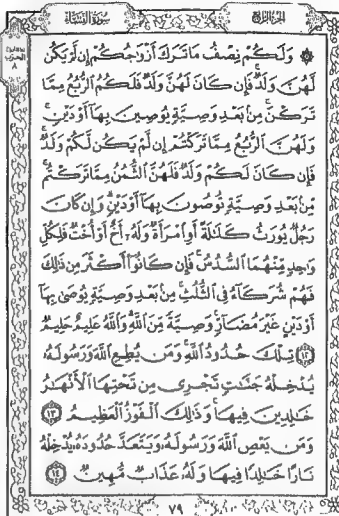 سورة النساء
الجزء الرابع
۞ وَلَكُمْ نِصْفُ مَا تَرَكَ أَزْوَاجُكُمْ إِن لَّمْ يَكُن
لَّهُنَّ وَلَدٌ فَإِن كَانَ لَهُنَّ وَلَدٌ فَلَكُمُ الرُّبُعُ مِمَّا
تَرَكْنَ مِن بَعْدِ وَصِيَّةٍ يُوصِينَ بِهَا أَوْ دَيْنٍ
وَلَهُنَّ الرُّبُعُ مِمَّا تَرَكْتُمْ إِن لَّمْ يَكُن لَّكُمْ وَلَدٌ
فَإِن كَانَ لَكُمْ وَلَدٌ فَلَهُنَّ الثُّمُنُ مِمَّا تَرَكْتُم
مِّن بَعْدِ وَصِيَّةٍ تُوصُونَ بِهَا أَوْ دَيْنٍ وَإِن كَانَ
رَجُلٌ يُورَثُ كَلَالَةً أَوِ امْرَأَةٌ وَلَهُ أَخٌ أَوْ أُخْتٌ فَلِكُلِّ
وَاحِدٍ مِّنْهُمَا السُّدُسُ فَإِن كَانُوا أَكْثَرَ مِن ذَٰلِكَ
فَهُمْ شُرَكَاءُ فِي الثُّلُثِ مِن بَعْدِ وَصِيَّةٍ يُوصَىٰ بِهَا
أَوْ دَيْنٍ غَيْرَ مُضَارٍّ وَصِيَّةً مِّنَ اللَّهِ وَاللَّهُ عَلِيمٌ حَلِيمٌ
١٢ تِلْكَ حُدُودُ اللَّهِ وَمَن يُطِعِ اللَّهَ وَرَسُولَهُ
يُدْخِلْهُ جَنَّاتٍ تَجْرِي مِن تَحْتِهَا الْأَنْهَارُ
خَالِدِينَ فِيهَا وَذَٰلِكَ الْفَوْزُ الْعَظِيمُ ١٣
وَمَن يَعْصِ اللَّهَ وَرَسُولَهُ وَيَتَعَدَّ حُدُودَهُ يُدْخِلْهُ
نَارًا خَالِدًا فِيهَا وَلَهُ عَذَابٌ مُّهِينٌ ١٤
٧٩